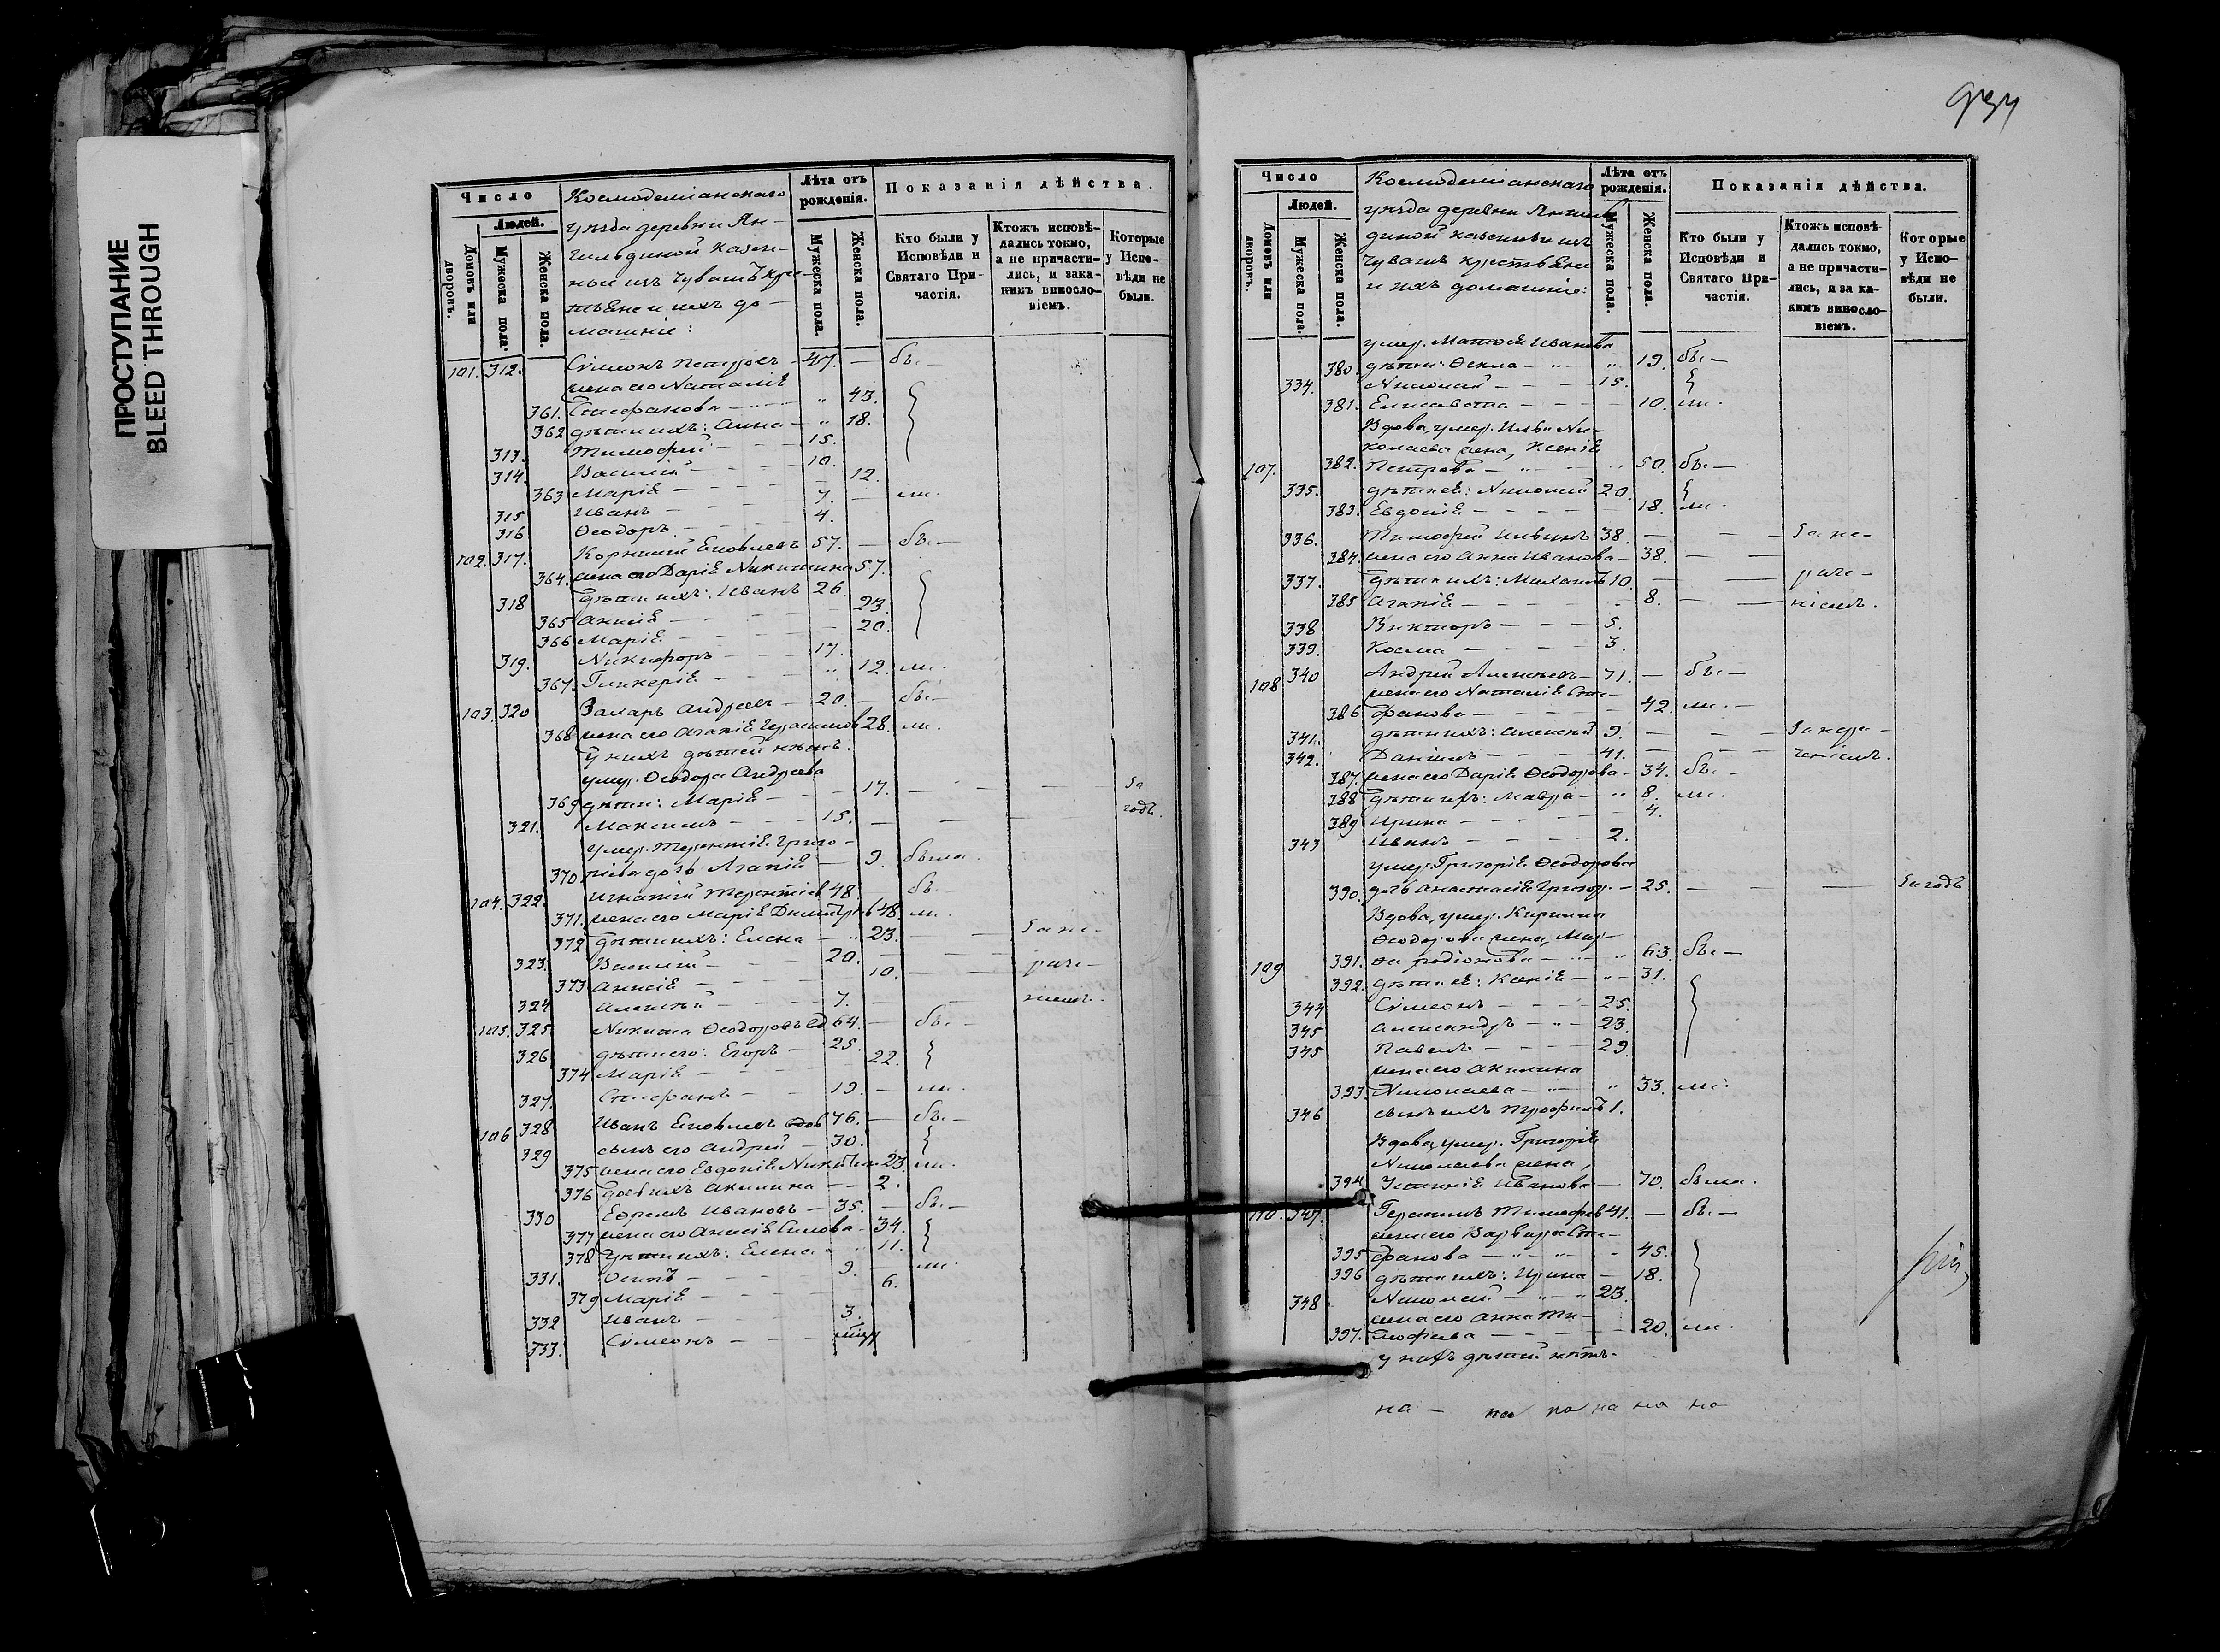 ПРОСТУПАНИЕ
BLEED THROUGH
Число
Людей.
Домовъ или дворовъ.
Мужеска пола.
Женска пола.
Космодемiанскаго
уѣзда деревни Ян-
гильдиной казен-
ныи изъ Чувашъ кре-
стьяне и ихъ до-
машнiе:
Лѣта отъ рожденiя.
Мужеска пола.
Женска пола.
Показанiя дѣйства.
Кто были у Исповѣди и Святаго При- частiя.
Ктожъ исповѣ- дались токмо, а не причасти- лись, и зака- кимъ винословiемъ.
Которые у Испо- вѣди не были.
101. 312. Сѵмеонъ Петровъ - 47. — бы —
жена его Наталiя
361. Стефанова - " 43.
362 дѣти ихъ: Анна - " 18.
313. Тимофей - 15.
314. Василiй - 10.
363 Марiя - 12.
315 Иванъ - 7. — ли.
316 Ѳеодоръ - 4.
102. 317. Корнилiй Яковлевъ 57. — бы —
364. жена его Дарiя Никитина 57.
318 дѣти ихъ: Иванъ 26.
365 Анисiя - 23.
366 Марiя - 20.
319. Никифоръ - 17.
367. Гликерiя - " 12. ли.
103. 320 Захаръ Андреевъ - 20. — бы —
368 жена его Агапiя Герасимов 28. ли.
у нихъ дѣтей нѣтъ.
умер. Ѳеодора Андреева
369 дѣти: Марiя - 17. — — За
321. Максимъ - 15. — — годъ.
умер. Терентiя Григо-
370 рiева дочь Агапiя — 9. была.
104. 322. Игнатiй Терентiев 48. — бы —
371. жена его Марiя Димитрiев 48. ли.
372 дѣти ихъ: Елена - " 23. — — За не-
323. Василiй - 20. — —
373 Анисiя - 10. — — раче-
324 Алексѣй - 7. — — нiемъ.
105. 325. Никита Ѳеодоровъ вд 64. — бы —
326 дѣти его: Егоръ - 25.
374 Марiя - 22.
327. Стефанъ - 19. — ли.
106 328 Иванъ Яковлевъ вдов 76. — бы —
329 сынъ его Андрей - 30.
375 жена его Евдокiя Никитин 23. ли.
376 дочь ихъ Акилина - 2.
330 Ефремъ Ивановъ - 35. — бы —
377 жена его Анисiя Силова - 34.
378 дѣти ихъ: Елена - " 11.
331. Осипъ - 9. — ли.
379 Марiя - 6.
332 Иванъ - 3.
333. Сѵмеонъ -
Число
Людей.
Домовъ или дворовъ.
Мужеска пола.
Женска пола.
Космодемiанскаго
уѣзда деревни Янгиль-
диной казенныи изъ
Чувашъ крестьяне
и ихъ домашнiе:
Лѣта отъ рожденiя.
Мужеска пола.
Женска пола.
Показанiя дѣйства.
Кто были у Исповѣди и Святаго При- частiя.
Ктожъ исповѣ- дались токмо, а не причасти- лись, и за ка- кимъ винословiемъ.
Которые у Испо- вѣди не были.
умер. Матвея Иванова
380. дѣти: Ѳекла - " " 19. бы —
334. Николай - 15.
381. Елисавета - 10. ли.
Вдова, умер. Ильи Ни-
колаева жена, Ксенiя
107. 382. Петрова - " 50. бы —
335. дѣти ея: Николай 20.
383. Евдокiя - 18. ли.
336. Тимофей Ильинъ 38. — — За не-
384. жена его Анна Иванова - 38. — —
337. дѣти ихъ: Михаилъ 10. — — раче-
385 Агапiя - 8. — — нiемъ.
338 Викторъ - 5.
339. Косма - 3.
108 340 Андрей Алексѣевъ - 71. — бы —
жена его Наталiя Сте-
386 фанова - 42. ли. —
341. дѣти ихъ: Алексѣй 9. — — За нера-
342. Данiилъ - 41. — — ченiемъ.
387. жена его Дарiя Ѳеодорова - 34. бы —
388 дѣти ихъ: Мавра - " 8. ли.
389 Ирина - 4.
343 Иванъ - 2.
умер. Григорiя Ѳеодорова
390. дочь Анастасiя Григор. - 25. — — За годъ
Вдова, умер. Кирилла
Ѳеодорова жена, Мар-
109 391. ѳа Родiонова - " 63. бы —
392. дѣти ея: Ксенiя - " 31.
344 Сѵмеонъ - 25.
345 Александръ - " 23.
345 Павелъ - 29.
жена его Акилина
393. Николаева - " " 33. ли.
346 сынъ ихъ Трофимъ 1.
Вдова, умер. Григорiя
Николаева жена,
394 Устинiя Иванова — 70. была.
110. 347. Герасимъ Тимофеев 41. — бы —
жена его Варвара Сте-
395 фанова - " " 45.
396 дѣти ихъ: Ирина - 18.
348 Николай - " 23.
жена его Анна Ти-
397. мофеева - 20. ли.
у нихъ дѣтей нѣтъ.
на — на на на на на